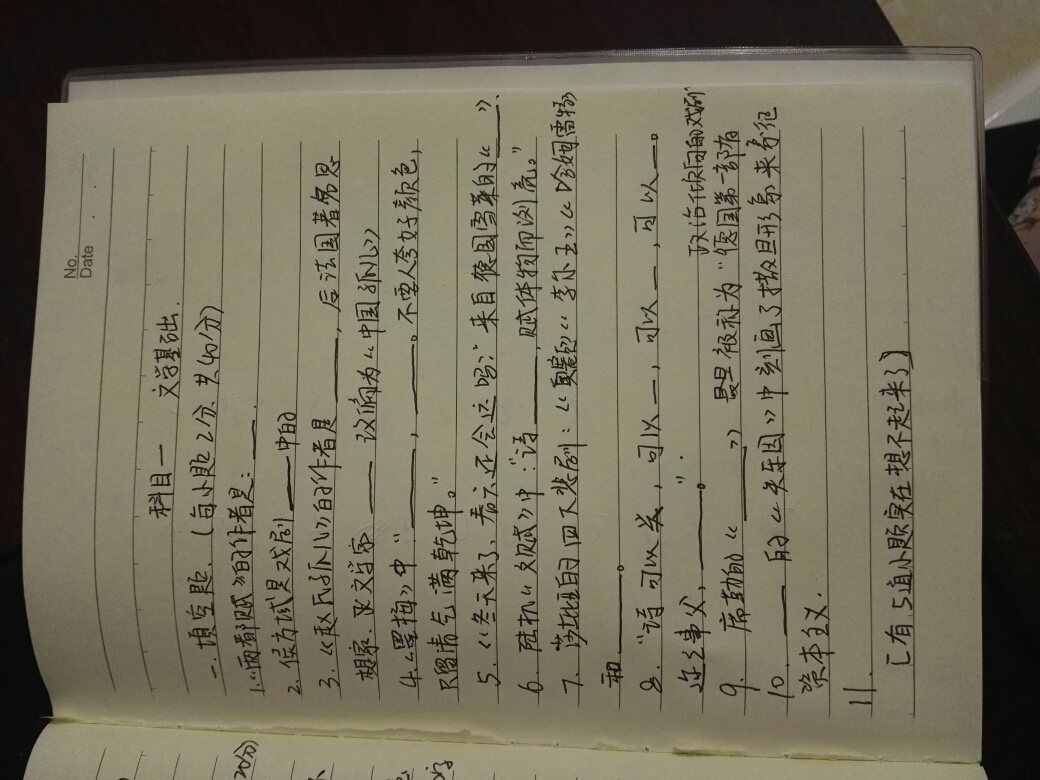 No.
Date
科目一 文学基础.
一. 填空题. (每小题2分, 共40分)
1.《两都赋》的作者是: ____.
2. 侯方域是戏剧____中的
3.《赵氏孤儿》的作者是______, 后法国著名思
想家、文学家____改编为《中国孤儿》
4.《墨梅》中"______, ______。不要人夸好颜色,
只留清气满乾坤。"
5.《冬天来了, 春天还会远吗?》来自德国雪莱的《____》.
6. 陆机《文赋》中:"诗______, 赋体物而浏亮。"
7. 莎士比亚的四大悲剧:《奥赛罗》《李尔王》《哈姆雷特》
和______。
8."诗可以类, 可以__, 可以__, 可以__。
迩之事父, ______。".
9. 席勒的《____》最早被称为"德国第一部有
政治倾向的戏剧
10. ____的《失乐园》中刻画了撒旦形象来象征
资本主义.
11.
[有5道小题实在想不起来了]
20分)